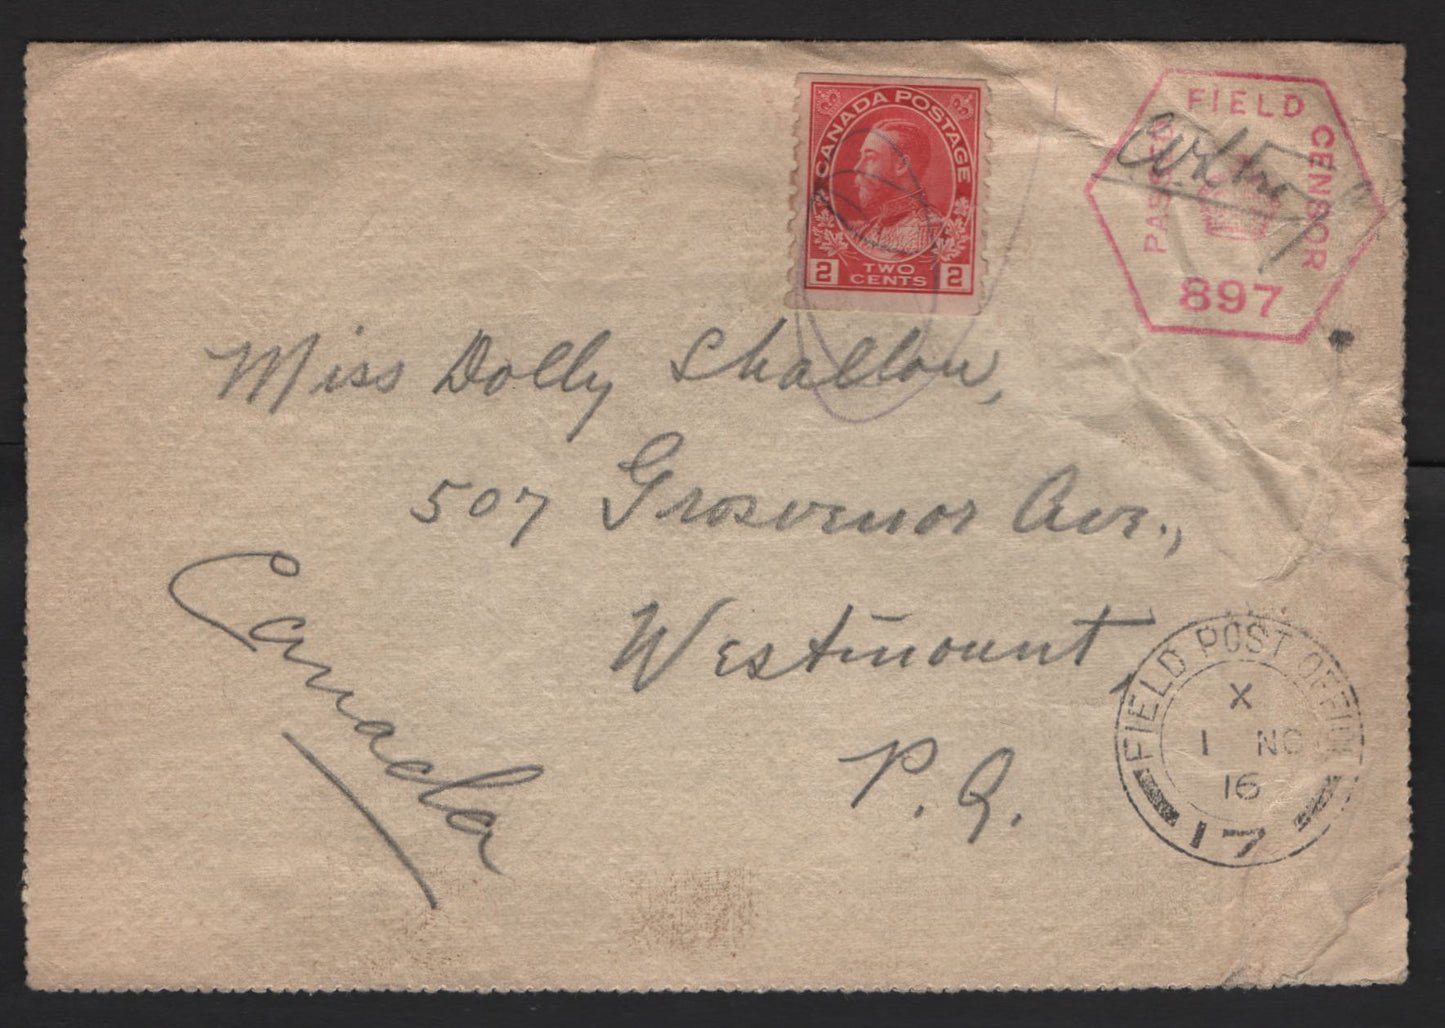 CANADA POSTAGE
2 TWO CENTS 2
PASSED FIELD CENSOR
897
Miss Dolly Shallow,
507 Grosvenor Ave.,
Westmount,
P.Q.
Canada
FIELD POST OFFICE
X
1 NO
16
17